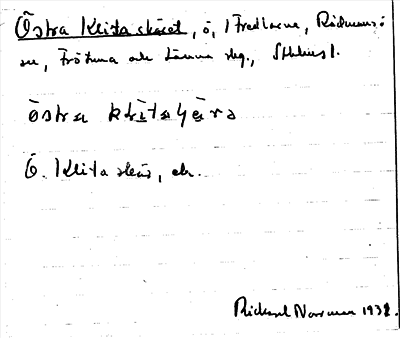 Östra Klitaskäret, ö, i Fredlarna, Rådmansö
sn, Frötuna och Länna skg., Sthlms l.
östra
Ö. Klitaskär, ek.
Rickard Norman 1938.